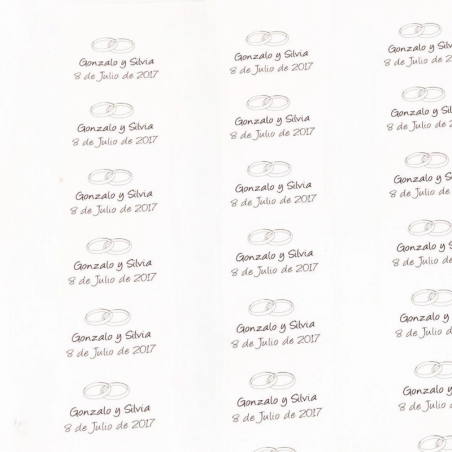 Gonzalo y Silvia
8 de Julio de 2017
Gonzalo y Silvia
8 de Julio de 2017
Gonzalo y
8 de Julio de
Gonzalo y Silvia
8 de Julio de 2017
Gonzalo y Silvia
8 de Julio de 2017
Gonzalo y
8 de Julio de
Gonzalo y Silvia
8 de Julio de 2017
Gonzalo y Silvia
8 de Julio de 2017
Gonzalo y
8 de Julio de
Gonzalo y Silvia
8 de Julio de 2017
Gonzalo y Silvia
8 de Julio de 2017
Gonzalo y
8 de Julio de
Gonzalo y Silvia
8 de Julio de 2017
Gonzalo y Silvia
8 de Julio de 2017
Gonzalo y
8 de Julio
Gonzalo y Silvia
8 de Julio de 2017
Gonzalo y Silvia
8 de Julio de 2017
Gonzalo y
8 de Julio